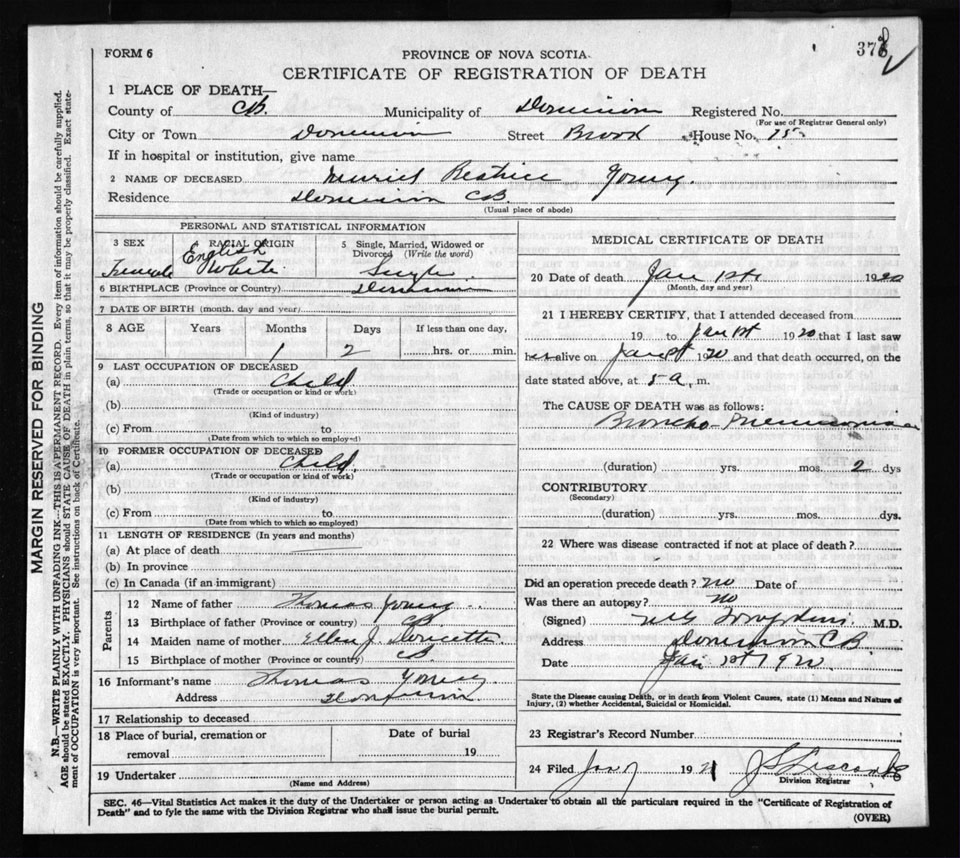 FORM 6
PROVINCE OF NOVA SCOTIA
378
CERTIFICATE OF REGISTRATION OF DEATH
1 PLACE OF DEATH—
County of CB. Municipality of Dominion Registered No.
(For use of Registrar General only)
City or Town Dominion Street Brook House No. 75
If in hospital or institution, give name
2 NAME OF DECEASED Muriel Beatrice Young.
Residence Dominion CB.
(Usual place of abode)
PERSONAL AND STATISTICAL INFORMATION
3 SEX Female
4 RACIAL ORIGIN English White
5 Single, Married, Widowed or Divorced (Write the word) Single
6 BIRTHPLACE (Province or Country) Dominion
7 DATE OF BIRTH (month, day and year)
8 AGE Years Months Days If less than one day,
1 2 hrs. or min.
9 LAST OCCUPATION OF DECEASED
(a) Child
(Trade or occupation or kind or work)
(b)
(Kind of industry)
(c) From to
(Date from which to which so employed)
10 FORMER OCCUPATION OF DECEASED
(a) Child
(Trade or occupation or kind of work)
(b)
(Kind of industry)
(c) From to
(Date from which to which so employed)
11 LENGTH OF RESIDENCE (In years and months)
(a) At place of death
(b) In province
(c) In Canada (if an immigrant)
Parents
12 Name of father Thomas Young
13 Birthplace of father (Province or country) CB
14 Maiden name of mother Ellen J. Doucette
15 Birthplace of mother (Province or country) CB.
16 Informant's name Thomas Young
Address Dominion
17 Relationship to deceased
18 Place of burial, cremation or removal
Date of burial
19
19 Undertaker
(Name and Address)
MEDICAL CERTIFICATE OF DEATH
20 Date of death Jan 1st 1920
(Month, day and year)
21 I HEREBY CERTIFY, that I attended deceased from
19 to Jan 1st 1920 that I last saw
h alive on Jan 1st 1920 and that death occurred, on the
date stated above, at 5 a. m.
The CAUSE OF DEATH was as follows:
Broncho-Pneumonia
(duration) yrs. mos. 2 dys
CONTRIBUTORY
(Secondary)
(duration) yrs. mos. dys.
22 Where was disease contracted if not at place of death?
Did an operation precede death? No Date of
Was there an autopsy? No
(Signed) M.D.
Address Dominion CB.
Date Jan 1st 1920
State the Disease causing Death, or in death from Violent Causes, state (1) Means and Nature of
Injury, (2) whether Accidental, Suicidal or Homicidal.
23 Registrar's Record Number
24 Filed Jan 7 1921
Division Registrar
SEC. 46—Vital Statistics Act makes it the duty of the Undertaker or person acting as Undertaker to obtain all the particulars required in the "Certificate of Registration of
Death" and to fyle the same with the Division Registrar who shall issue the burial permit.
(OVER)
MARGIN RESERVED FOR BINDING
N.B.—WRITE PLAINLY WITH UNFADING INK—THIS IS A PERMANENT RECORD. Every item of information should be carefully supplied.
AGE should be stated EXACTLY. PHYSICIANS should STATE CAUSE OF DEATH in plain terms, so that it may be properly classified. Exact state-
ment of OCCUPATION is very important. See instructions on back of Certificate.